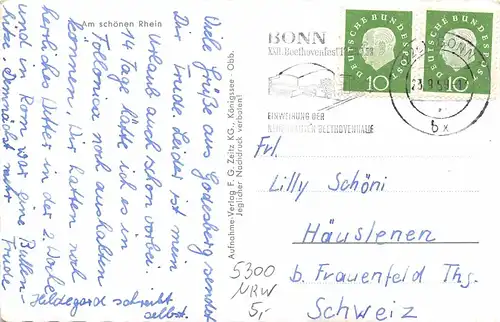 Am schönen Rhein
Viele Grüße aus Godesberg sendet
Dir Trude. Leider ist mein
Urlaub auch schon vorbei.
14 Tage hätte ich es in
noch aushalten
können. Wir hatten noch
herrliches Wetter in der 2. Woche
und in Rom war eine
hitze. Demnächst mehr
Trude
Hildegard schreibt
selbst.
Aufnahme-Verlag F. G. Zeitz KG., Königssee-Obb.
Jeglicher Nachdruck verboten!
BONN
XXII. Beethovenfest
EINWEIHUNG DER
BEETHOVENHALLE
DEUTSCHE BUNDESPOST
10
DEUTSCHE BUNDESPOST
10
BONN
23.9.59
b x
Frl.
Lilly Schöni
Häuslenen
b. Frauenfeld Thg.
Schweiz
5300
NRW
5,-